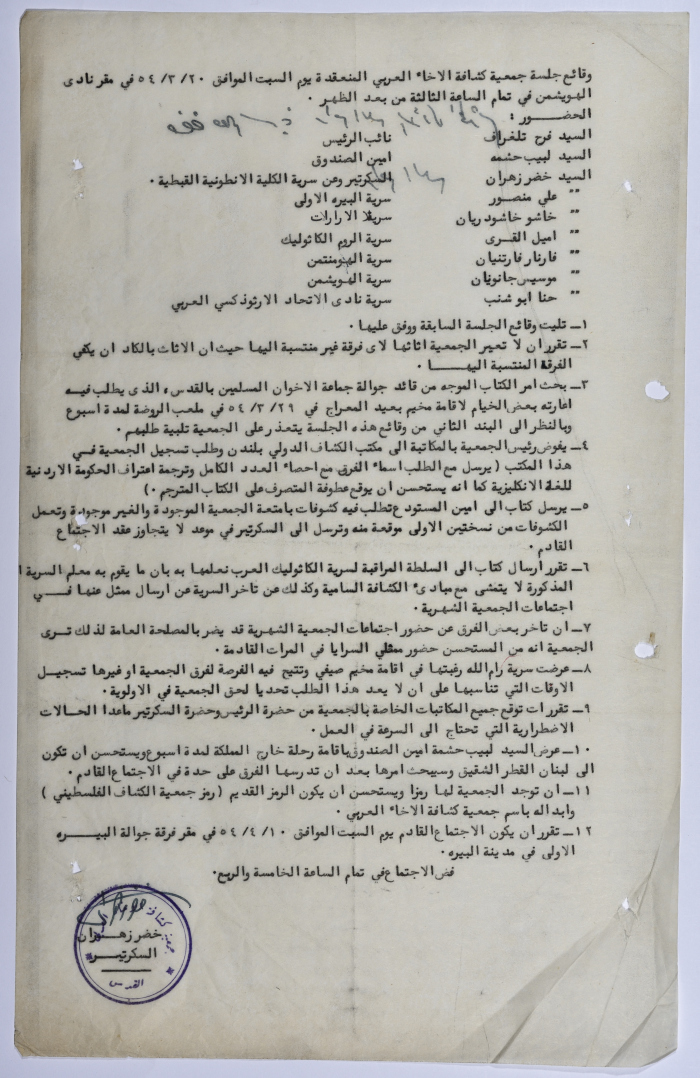 وقائع جلسة جمعية كشافة الاخاء العربي المنعقدة يوم السبت الموافق ٢٠/٣/٥٤ في مقر نادى
الهويشمن في تمام الساعة الثالثة من بعد الظهر .
الحضــور :
السيد فرح تلغراف نائب الرئيس
السيد لبيب حشمه امين الصندوق
السيد خضر زهران السكرتير وعن سرية الكلية الانطونية القبطية .
" علي منصور سرية البيره الاولى
" خاشو خاشودريان سرية الارارات
" اميل القـرى سرية الروم الكاثوليك
" فارنار فارتنيان سرية الهومنتمن
" موسيس جانونيان سرية الهويشمن
" حنا ابو شنب سرية نادى الاتحاد الارثوذكسي العربي
١ـ تليت وقائع الجلسة السابقة ووفق عليها .
٢ـ تقرر ان لا تعير الجمعية اثاثها لاى فرقة غير منتسبة اليها حيث ان الاثاث بالكاد ان يكفي
الفرقة المنتسبة اليهـــا .
٣ـ بحث امر الكتاب الموجه من قائد جوالة جماعة الاخوان المسلمين بالقدس، الذى يطلب فيـه
اعارته بعض الخيام لاقامة مخيم بعيد المعراج في ٢٩/٣/٥٤ في ملعب الروضة لمدة اسبوع
وبالنظر الى البند الثاني من وقائع هذه الجلسة يتعذر على الجمعية تلبية طلبهم .
٤ـ يفوض رئيس الجمعية بالمكاتبة الى مكتب الكشاف الدولي بلندن وطلب تسجيل الجمعية فـي
هذا المكتب ( يرسل مع الطلب اسماء الفرق مع احصاء العدد الكامل وترجمة اعتراف الحكومة الاردنية
للغة الانكليزية كما انه يستحسن ان يوقع عطوفة المتصرف على الكتاب المترجم . )
٥ـ يرسل كتاب الى امين المستودع تطلب فيه كشوفات بامتعة الجمعية الموجودة والغير موجودة وتعمل
الكشوفات من نسختين الاولى موقعة منه وترسل الى السكرتير في موعد لا يتجاوز عقد الاجتماع
القادم .
٦ـ تقرر ارسال كتاب الى السلطة المراقبة لسرية الكاثوليك العرب نعلمها به بان ما يقوم به معلم السرية
المذكورة لا يتمشى مع مبادىء الكشافة السامية وكذلك عن تاخر السرية عن ارسال ممثل عنها فـي
اجتماعات الجمعية الشهرية .
٧ـ ان تاخر بعض الفرق عن حضور اجتماعات الجمعية الشهرية قد يضر بالمصلحة العامة لذلك تـرى
الجمعية انه من المستحسن حضور ممثلي السرايا في المرات القادمة .
٨ـ عرضت سرية رام الله رغبتها في اقامة مخيم صيفي وتتيح فيه الفرصة لفرق الجمعية او غيرها تسجيـل
الاوقات التي تناسبها على ان لا يعد هذا الطلب تحديا لحق الجمعية في الاولوية .
٩ـ تقرر ات توقع جميع المكاتبات الخاصة بالجمعية من حضرة الرئيس وحضرة السكرتير ماعدا الحـالات
الاضطرارية التي تحتاج الى السرعة في العمل .
١٠ـ عرض السيد لبيب حشمة امين الصندوق باقامة رحلة خارج المملكة لمدة اسبوع ويستحسن ان تكون
الى لبنان القطر الشقيق وسيبحث امرها بعد ان تدرسها الفرق على حدة في الاجتماع القادم .
١١ـ ان توجد الجمعية لها رمزا ويستحسن ان يكون الرمز القديم ( رمز جمعية الكشاف الفلسطيني )
وابداله باسم جمعية كشافة الاخاء العربي .
١٢ـ تقرر ان يكون الاجتماع القادم يوم السبت الموافق ١٠/٤/٥٤ في مقر فرقة جوالة البيــره
الاولى في مدينة البيره .
فض الاجتماع في تمام الساعة الخامسة والربع .
خضر زهـران
السكرتيـر
القدس